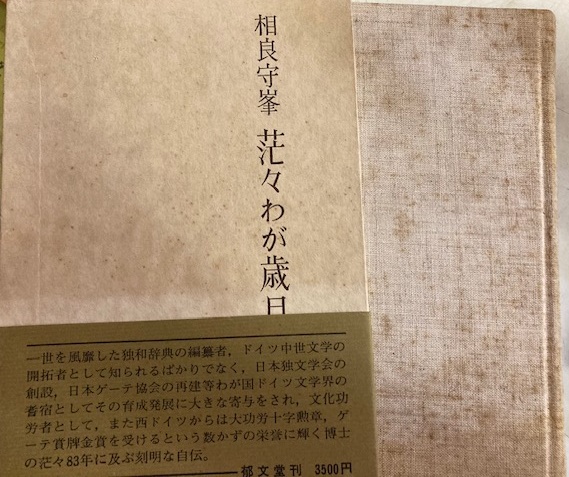 相良守峯
茫々わが歳日
一世を風靡した独和辞典の編纂者，ドイツ中世文学の
開拓者として知られるばかりでなく，日本独文学会の
創設，日本ゲーテ協会の再建等わが国ドイツ文学界の
耆宿としてその育成発展に大きな寄与をされ，文化功
労者として，また西ドイツからは大功労十字勲章，ゲ
ーテ賞牌金賞を受けるという数かずの栄誉に輝く博士
の茫々83年に及ぶ刻明な自伝。
郁文堂刊 3500円